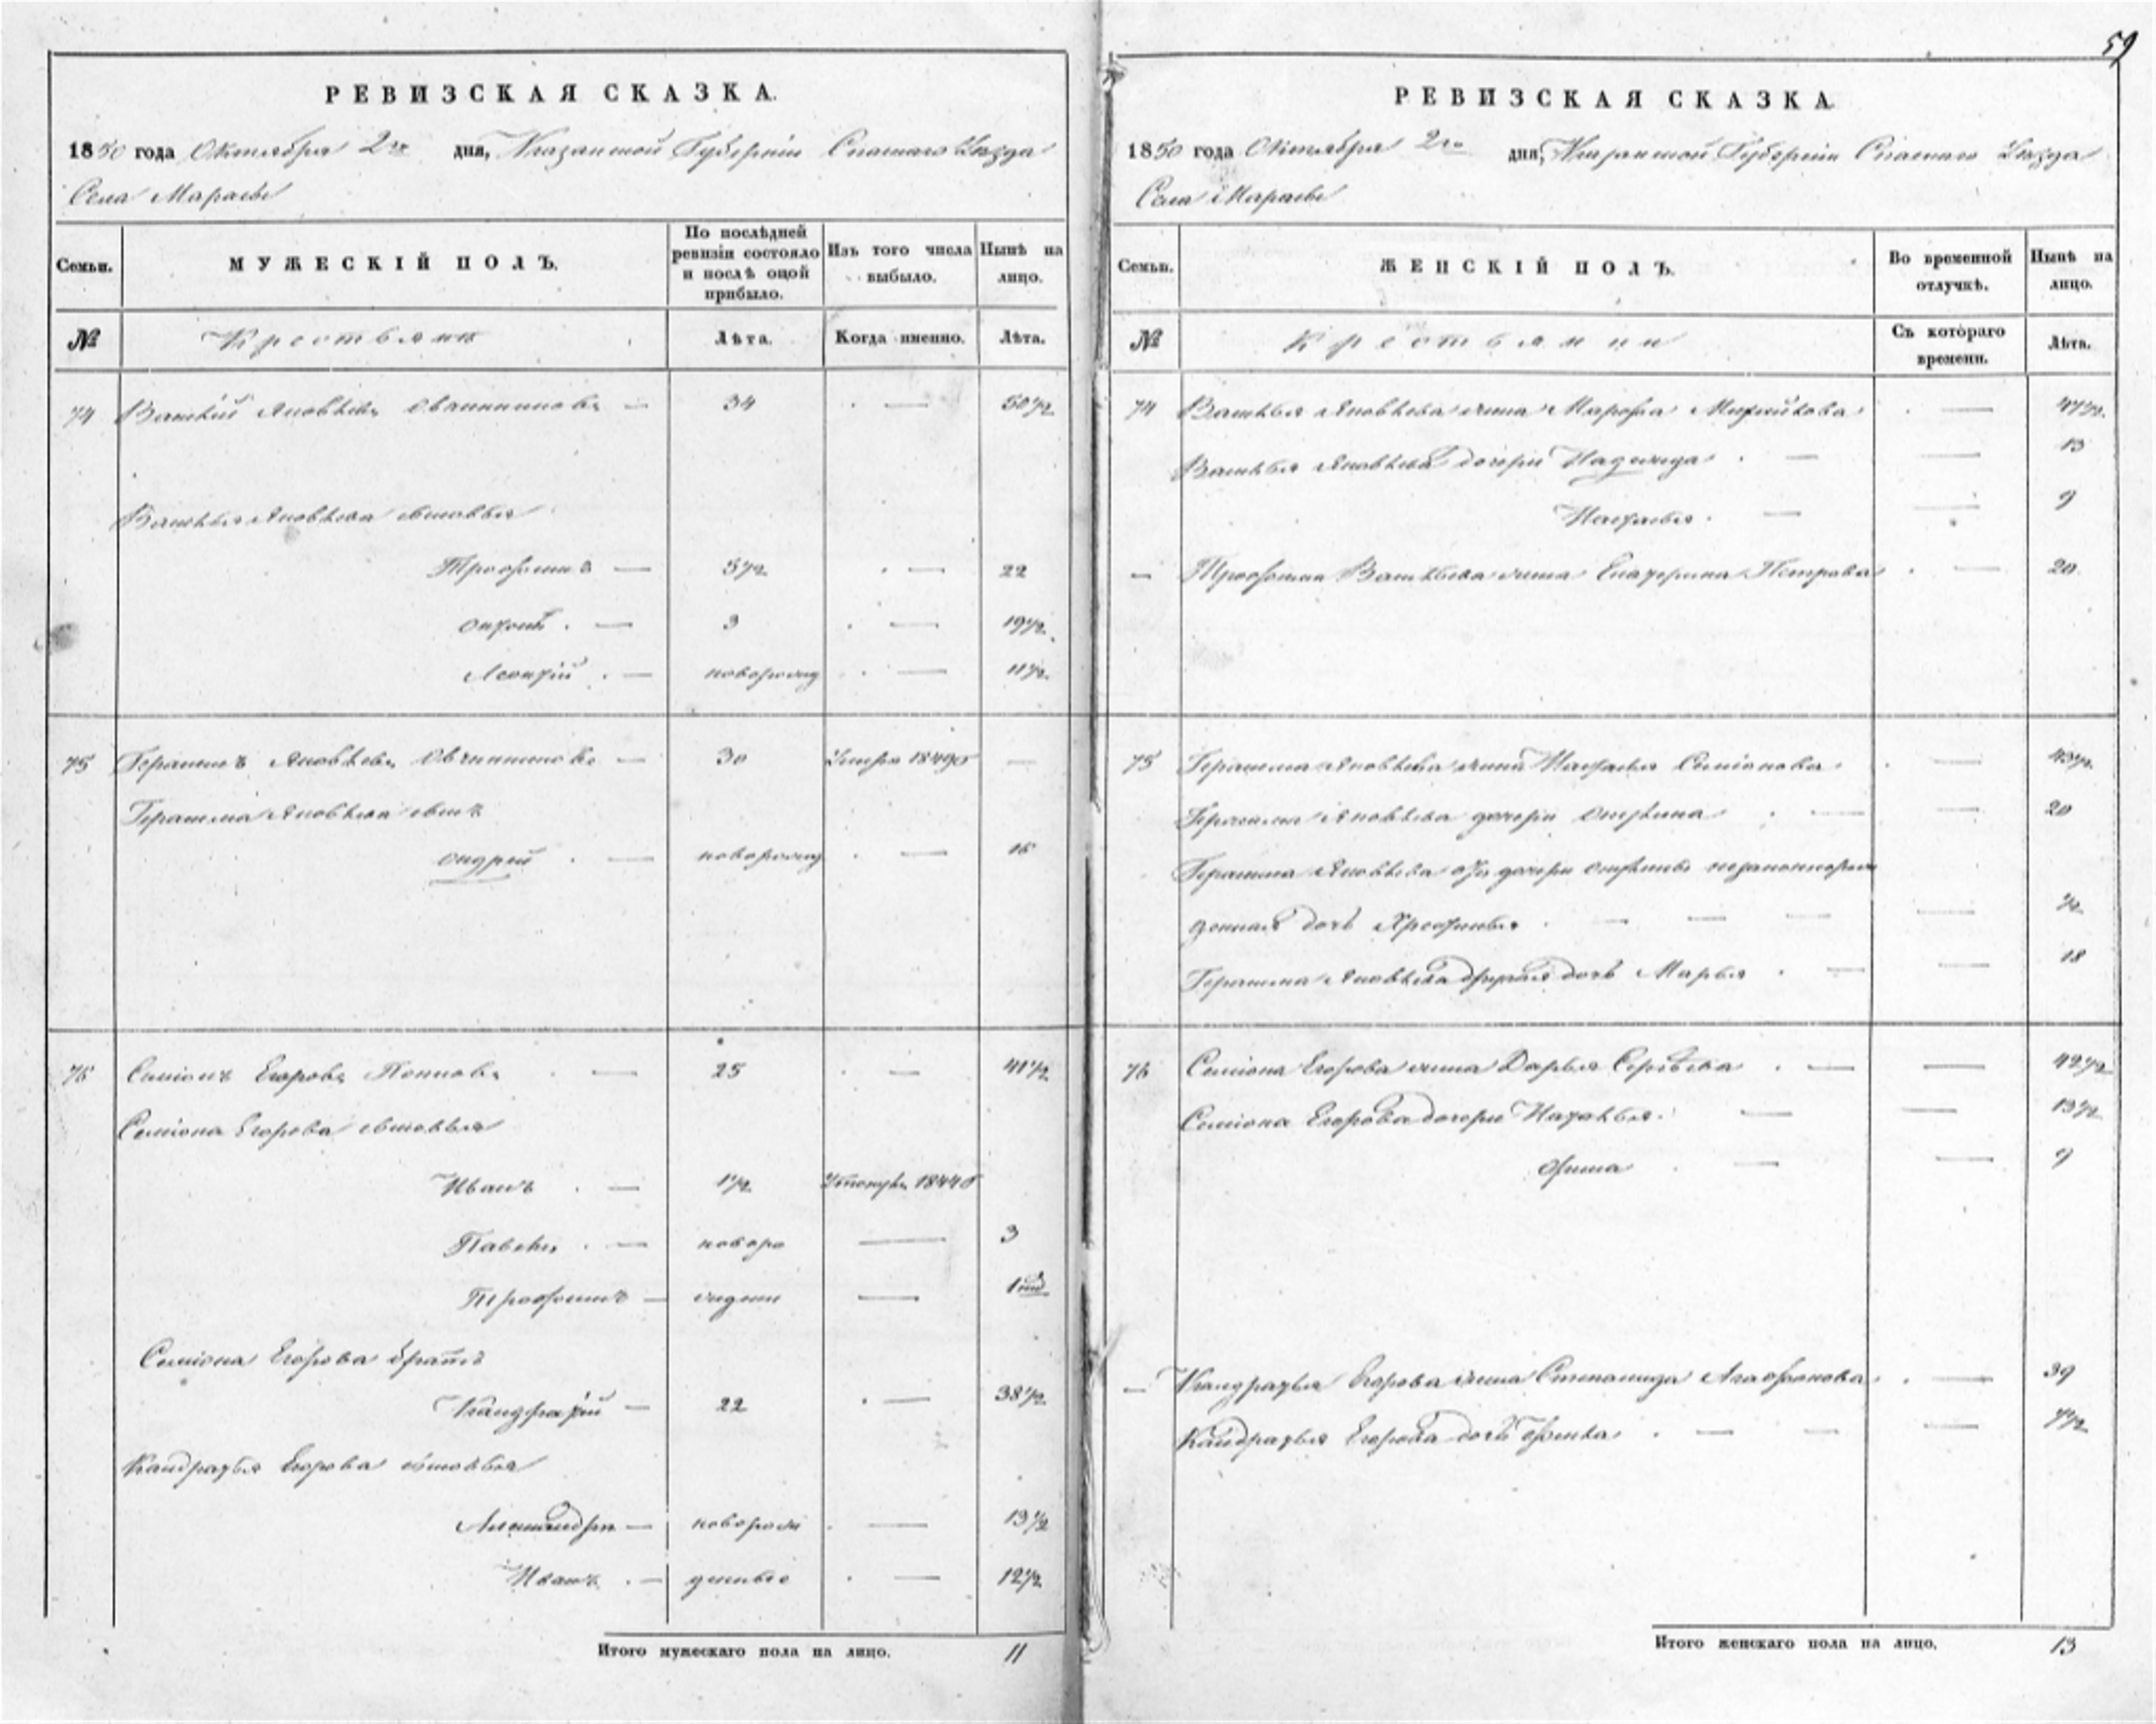 59
РЕВИЗСКАЯ СКАЗКА.
1850 года Октября 2го дня, Казанской Губернiи Спаскаго Уѣзда
Села Марасы
Семьи.
МУЖЕСКIЙ ПОЛЪ.
По послѣдней ревизiи состояло и послѣ оной прибыло.
Изъ того числа выбыло.
Нынѣ на лицо.
№ Крестьяне Лѣта. Когда именно. Лѣта.
74 Василiй Яковлевъ Овчинниковъ — 34 — 50 1/2
Василья Яковлева сыновья
Трофимъ — 5 1/2 — 22
— 3 — 19 1/2
Леонтiй — новорожд — 11 1/2
75 Герасимъ Яковлевъ Овчинниковъ — 30 Умеръ 1849 —
Герасима Яковлева сынъ
Андрей — новорожд — 16
76 Семiонъ Егоровъ Поповъ — 25 — 41 1/2
Семiона Егорова сыновья
Иванъ — 1 1/2 1844
Павелъ — новоро — 3
Трофимъ — ждены — 1
Семiона Егорова братъ
Кандратiй — 22 — 38 1/2
Кандратья Егорова сыновья
Александръ — новорож — 13 1/2
Иванъ — денные — 12 1/2
Итого мужескаго пола на лицо. 11
РЕВИЗСКАЯ СКАЗКА
1850 года Октября 2го дня, Казанской Губернiи Спаскаго Уѣзда
Села Марасы
Семьи.
ЖЕНСКIЙ ПОЛЪ.
Во временной отлучкѣ.
Нынѣ на лицо.
№ Крестьянки Съ котораго времени. Лѣта.
74 Василья Яковлева жена Марфа — 47 1/2
Василья Яковлева дочери Надежда — — 13
Настасья — — 9
— Трофима Васильева жена Екатерина Петрова — 20
75 Герасима Яковлева жена Настасья Семiонова — 43 1/2
Герасима Яковлева дочери — — 20
Герасима Яковлева дочери незаконнорож
денная дочь — — — — 1/2
Герасима Яковлева другая дочь Марья — — 18
76 Семiона Егорова жена Дарья Сергѣева — — 42 1/2
Семiона Егорова дочери Наталья — — 13 1/2
Арина — — 9
— Кандратья Егорова жена Степанида Агафонова — 39
Кандратья Егорова дочь — — — 7 1/2
Итого женскаго пола на лицо. 13